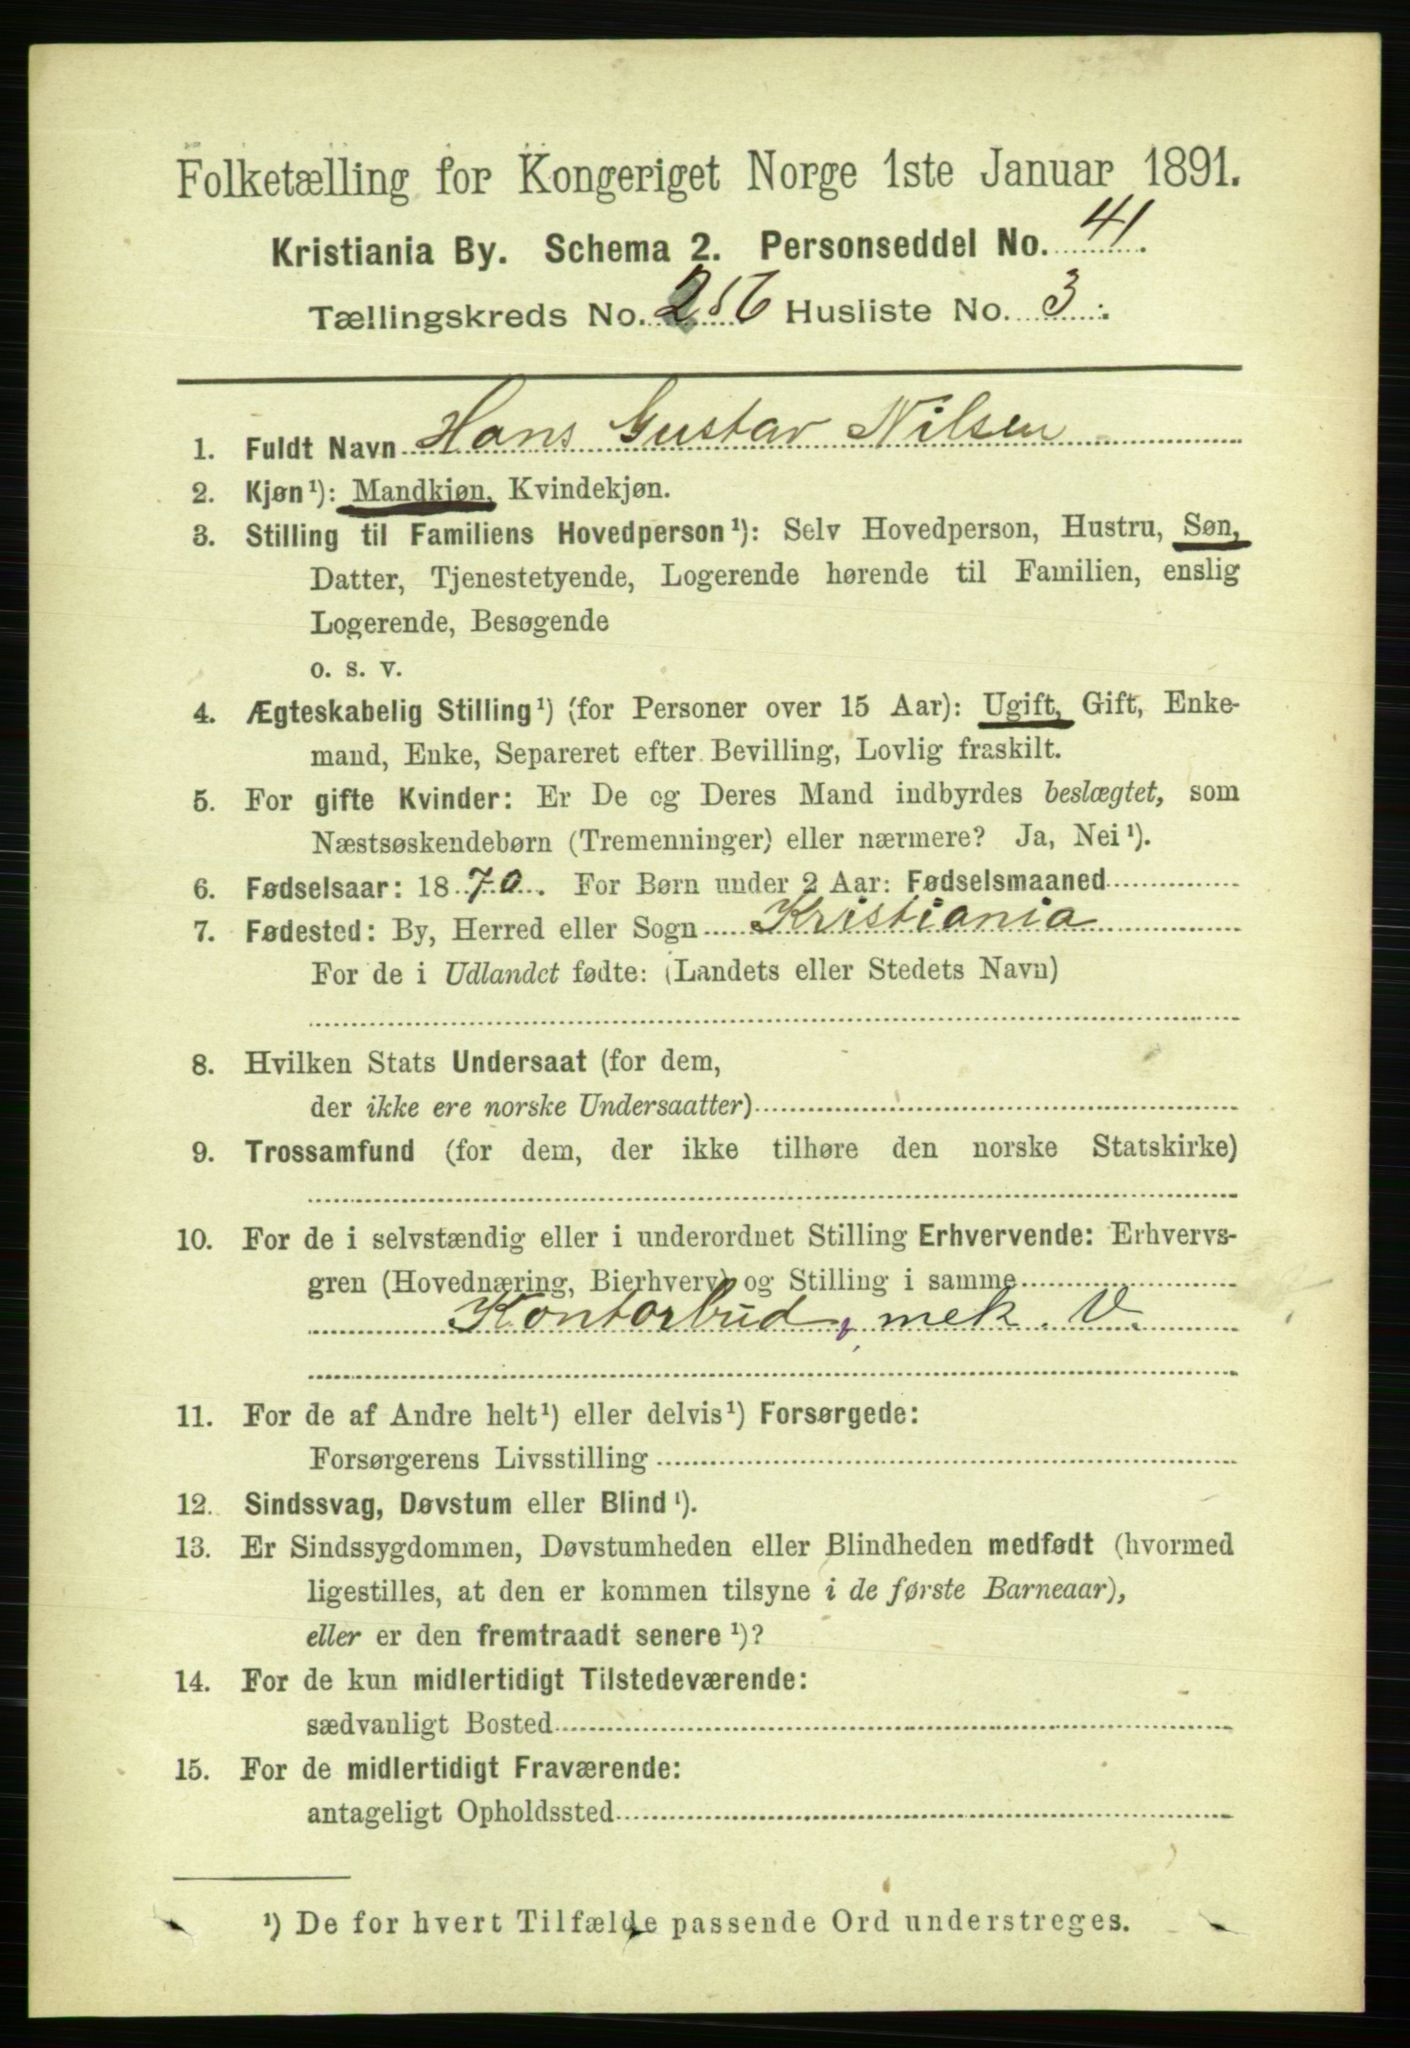 Folketælling for Kongeriget Norge 1ste Januar 1891.
Kristiania By. Schema 2. Personseddel No. 41.
Tællingskreds No. Husliste No. 3.
1. Fuldt Navn Hans Gustav Nilsen
2. Kjøn¹): Mandkjøn, Kvindekjøn.
3. Stilling til Familiens Hovedperson¹): Selv Hovedperson, Hustru, Søn,
Datter, Tjenestetyende, Logerende hørende til Familien, enslig
Logerende, Besøgende
o. s. v.
4. Ægteskabelig Stilling¹) (for Personer over 15 Aar): Ugift, Gift, Enke-
mand, Enke, Separeret efter Bevilling, Lovlig fraskilt.
5. For gifte Kvinder: Er De og Deres Mand indbyrdes beslægtet, som
Næstsøskendebørn (Tremenninger) eller nærmere? Ja, Nei¹).
6. Fødselsaar: 1870. For Børn under 2 Aar: Fødselsmaaned
7. Fødested: By, Herred eller Sogn Kristiania
For de i Udlandet fødte: (Landets eller Stedets Navn)
8. Hvilken Stats Undersaat (for dem,
der ikke ere norske Undersaatter)
9. Trossamfund (for dem, der ikke tilhøre den norske Statskirke)
10. For de i selvstændig eller i underordnet Stilling Erhvervende: Erhvervs-
gren (Hovednæring, Bierhverv) og Stilling i samme
Kontorbud, mek. V.
11. For de af Andre helt¹) eller delvis¹) Forsørgede:
Forsørgerens Livsstilling
12. Sindssvag, Døvstum eller Blind¹).
13. Er Sindssygdommen, Døvstumheden eller Blindheden medfødt (hvormed
ligestilles, at den er kommen tilsyne i de første Barneaar),
eller er den fremtraadt senere¹)?
14. For de kun midlertidigt Tilstedeværende:
sædvanligt Bosted
15. For de midlertidigt Fraværende:
antageligt Opholdssted
¹) De for hvert Tilfælde passende Ord understreges.